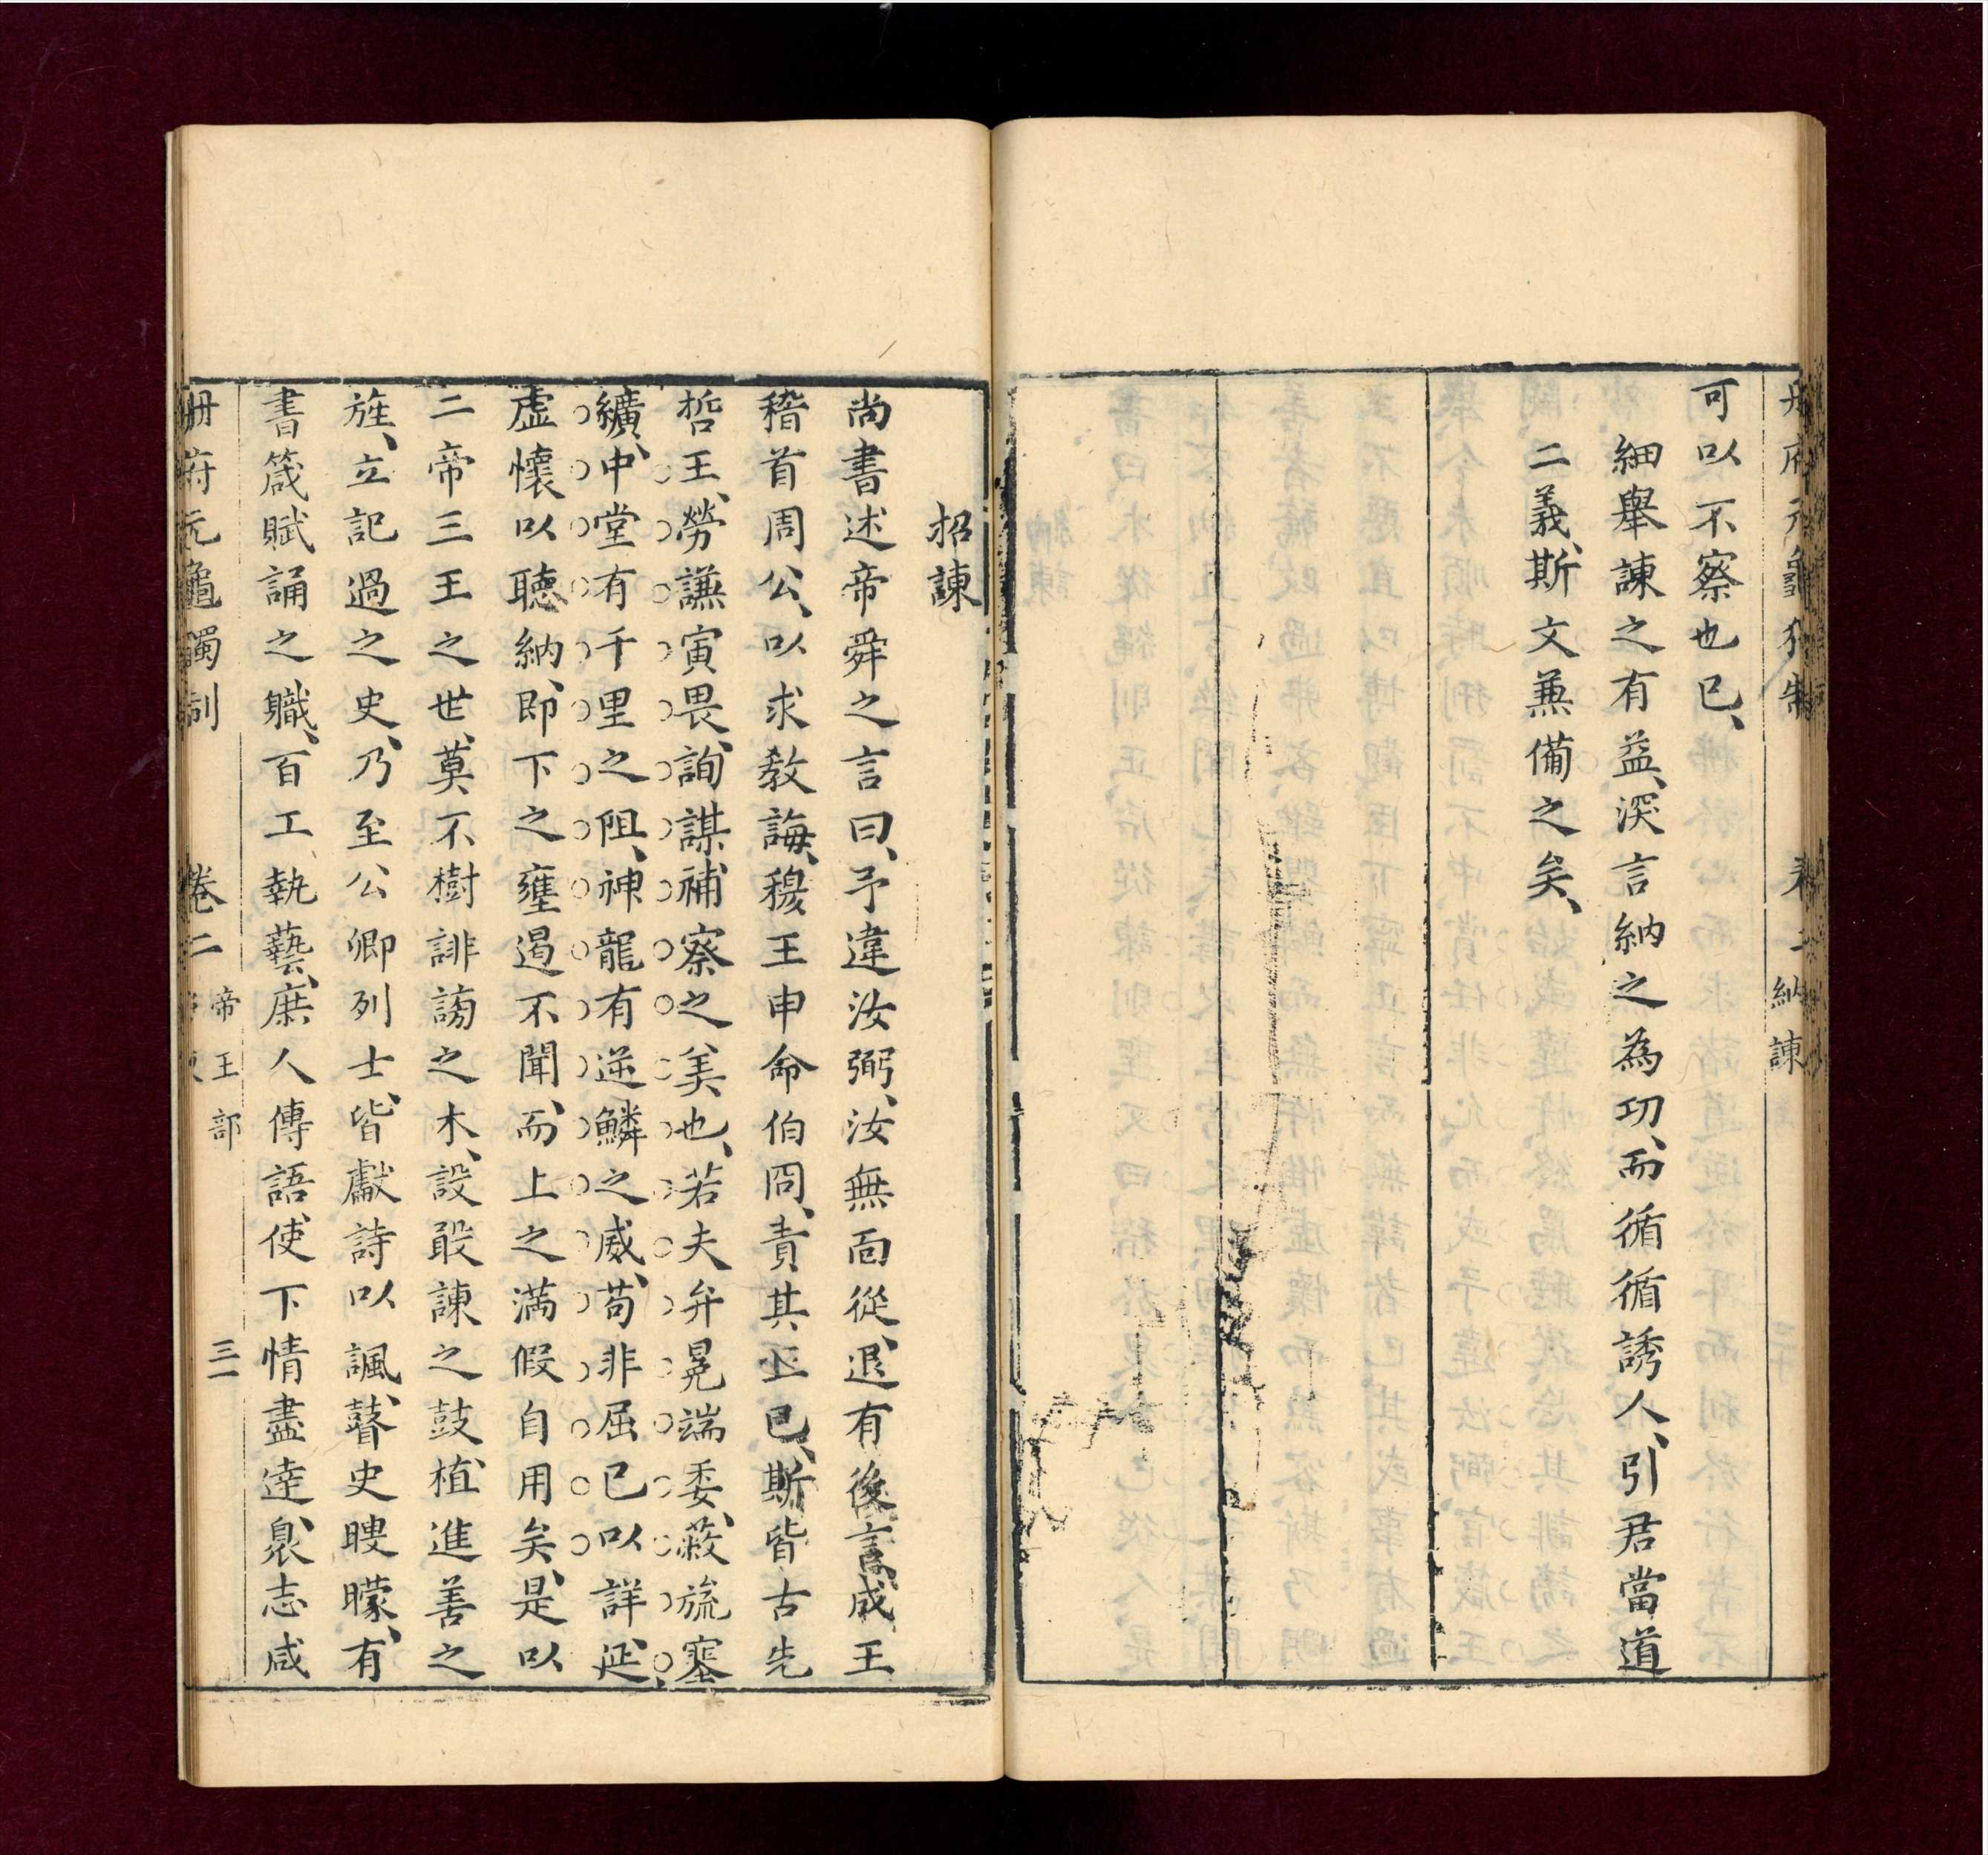 納諫
可以不察也已、
細舉諫之有益、深言納之為功、而循循誘人、引君當道
二義、斯文兼備之矣、
招諫
尚書述帝舜之言曰、予違汝弼、汝無面從、退有後言、成王
稽首周公、以求教誨、穆王申命伯冏、責其正已、斯皆古先
哲王、勞謙寅畏、詢謀補察之美也、若夫弁冕端委、蔽旒塞
纊、中堂有千里之阻、神龍有逆鱗之威、苟非屈已以詳延、
虛懷以聽納、即下之壅遏不聞、而上之滿假自用矣、是以
二帝三王之世、莫不樹誹謗之木、設敢諫之鼓、植進善之
旌、立記過之史、乃至公卿列士、皆獻詩以諷、瞽史瞍矇、有
書箴賦誦之職、百工執藝、庶人傳語、使下情盡達、眾志咸
冊府元龜獨制 卷二 帝王部 三一